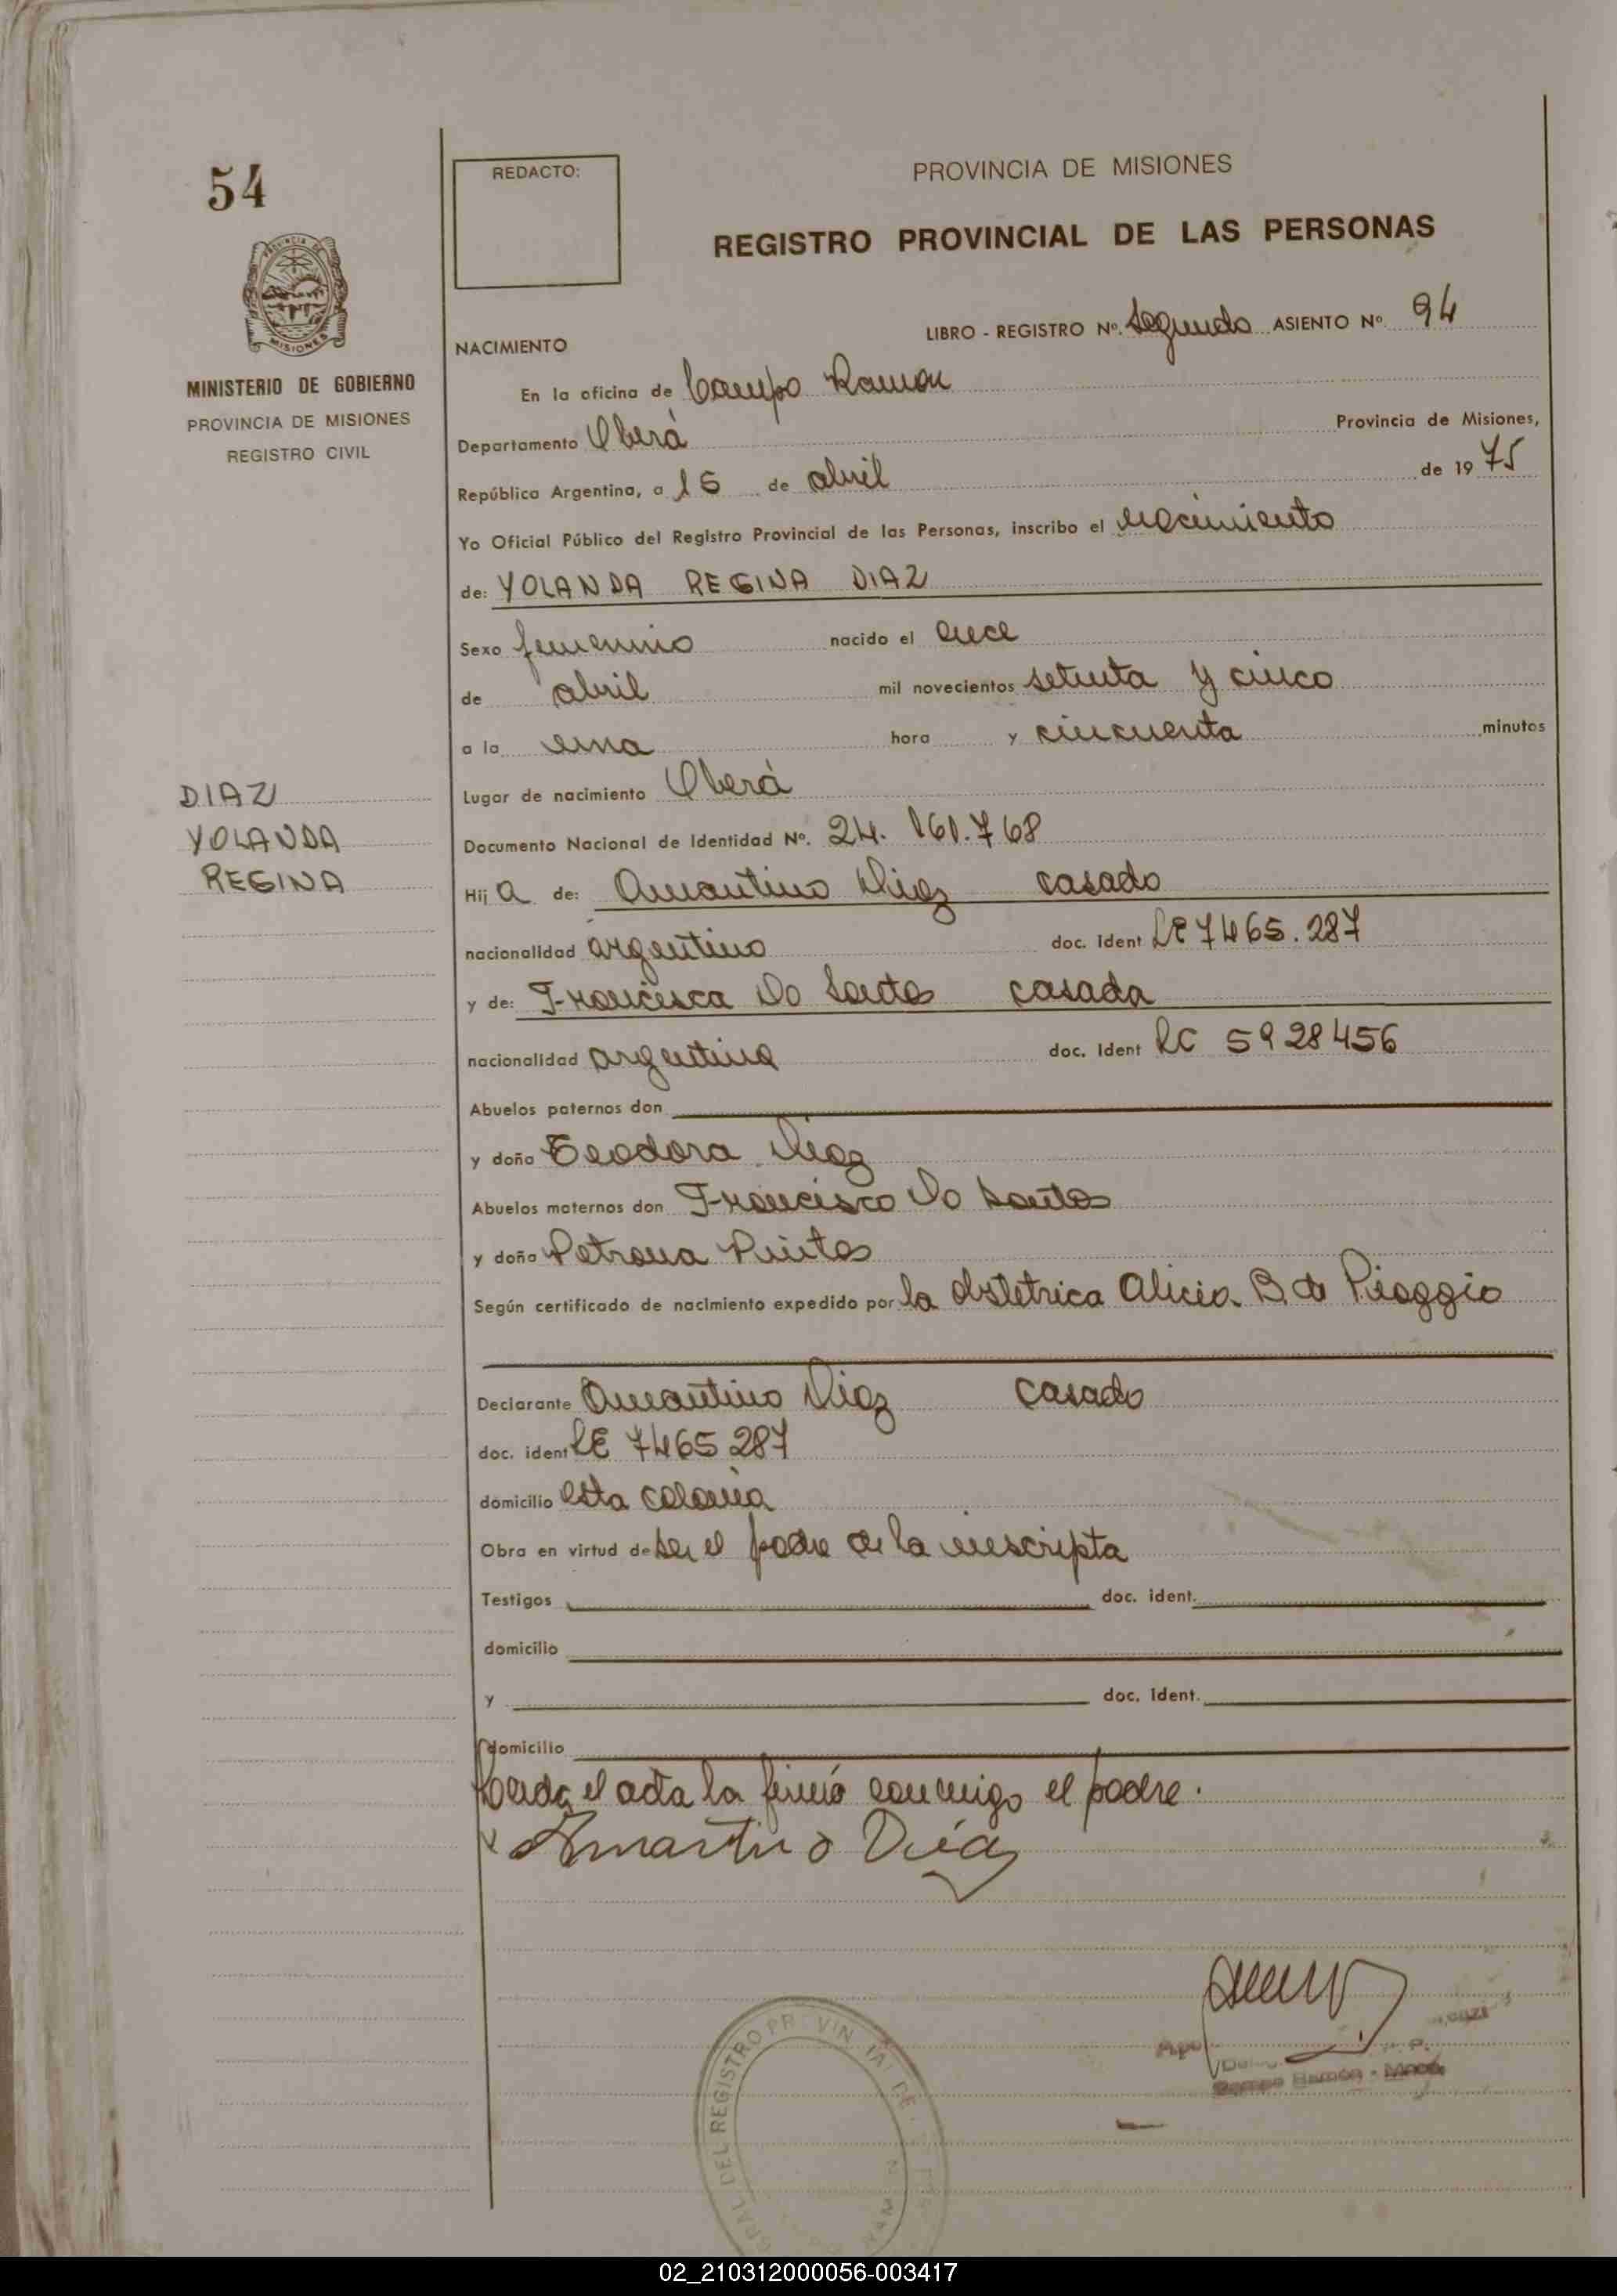 54
REDACTO:
PROVINCIA DE MISIONES
REGISTRO PROVINCIAL DE LAS PERSONAS
MISIONES
MINISTERIO DE GOBIERNO
PROVINCIA DE MISIONES
REGISTRO CIVIL
LIBRO - REGISTRO Nº. Segundo ASIENTO Nº. 94
NACIMIENTO
En la oficina de Campo Ramon
Departamento Oberá Provincia de Misiones,
República Argentina, a 16 de abril de 1975
Yo Oficial Público del Registro Provincial de las Personas, inscribo el nacimiento
de: YOLANDA REGINA DIAZ
Sexo femenino nacido el once
de abril mil novecientos setenta y cinco
a la una hora y cincuenta minutos
DIAZ
YOLANDA
REGINA
Lugar de nacimiento Oberá
Documento Nacional de Identidad Nº. 24.161.768
Hija de: Amantino Diaz casado
nacionalidad argentino doc. ident LE 7465.287
y de: Francisca Do Santos casada
nacionalidad argentina doc. ident LC 5928456
Abuelos paternos don
y doña Teodora Diaz
Abuelos maternos don Francisco Do Santos
y doña Petrona Pintos
Según certificado de nacimiento expedido por la obstetrica Alicia B. de Piaggio
Declarante Amantino Diaz casado
doc. ident LE 7465 287
domicilio esta colonia
Obra en virtud de ser el padre de la inscripta
Testigos doc. ident.
domicilio
y doc. ident.
domicilio
Leida el acta la firmó conmigo el padre.
x Amantino Diaz
Campo Ramón - Mnes.
DEL REGISTRO PROVINCIAL DE
02_210312000056-003417